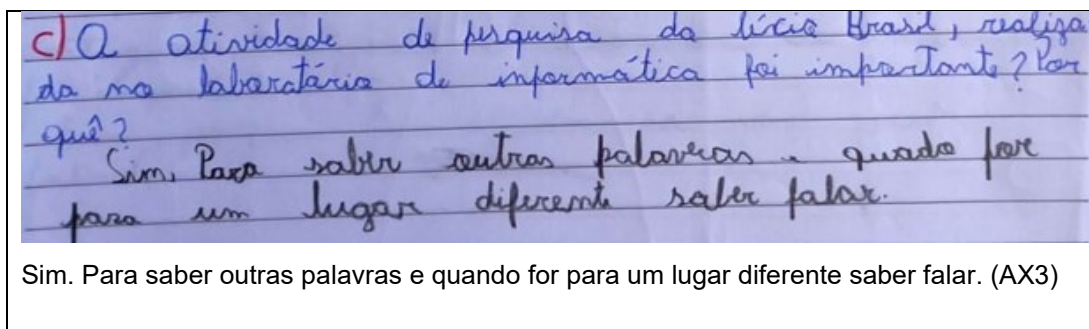 c) A atividade de pesquisa da lícia Brasil, realiza
da no laboratório de informática foi importante? Por
quê?
Sim, Para saber outras palavras e quado for
para um lugar diferente saber falar.
Sim. Para saber outras palavras e quando for para um lugar diferente saber falar. (AX3)